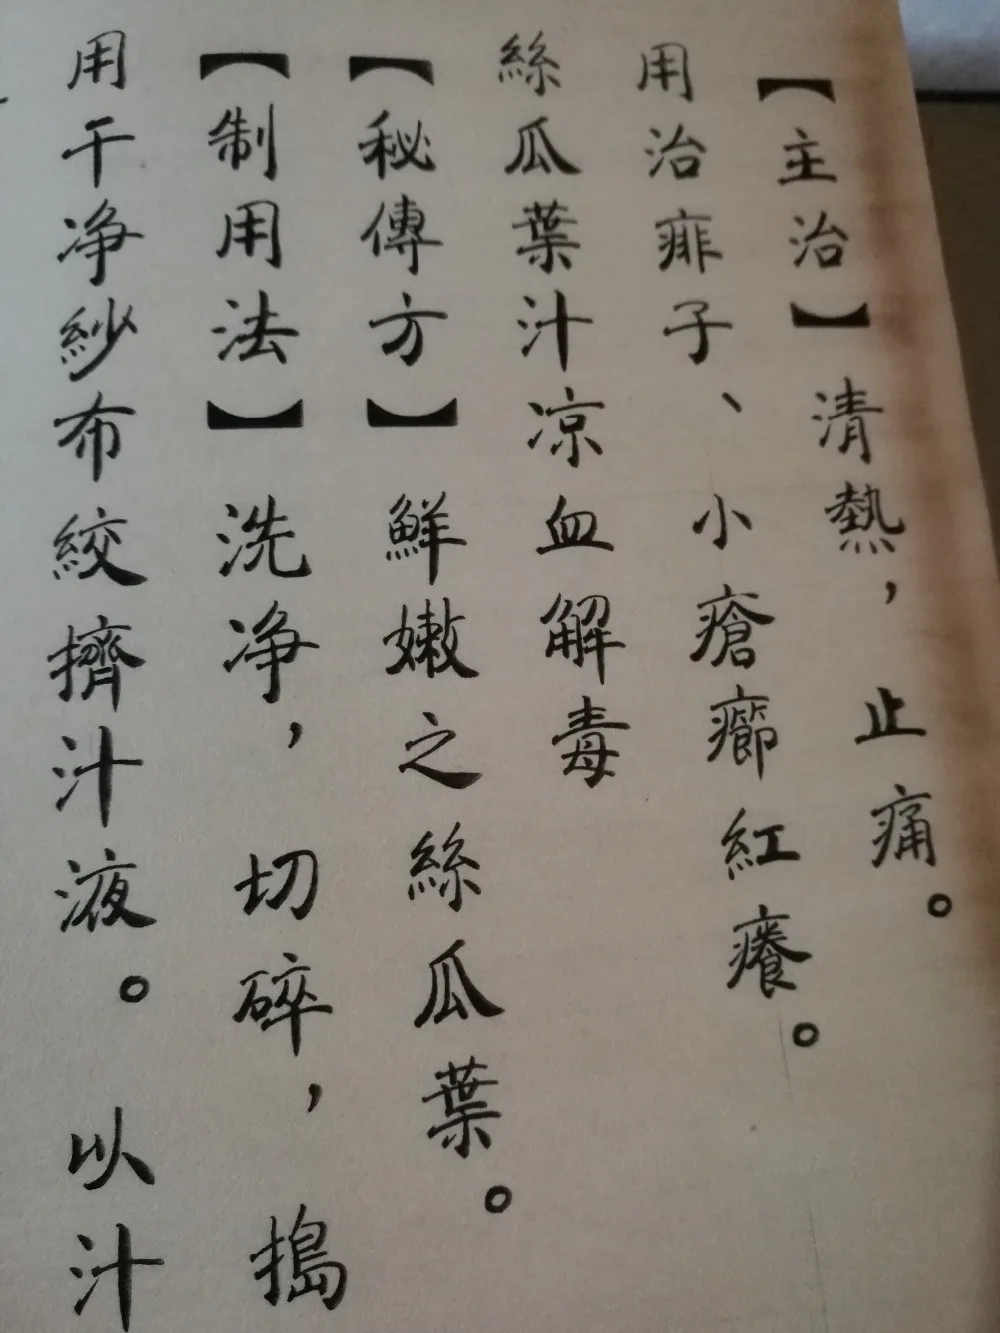 【主治】清熱，止痛。
用治痱子、小瘡癤紅癢。
絲瓜葉汁凉血解毒
【秘傳方】鮮嫩之絲瓜葉。
【制用法】洗净，切碎，搗
用干净紗布絞擠汁液。以汁